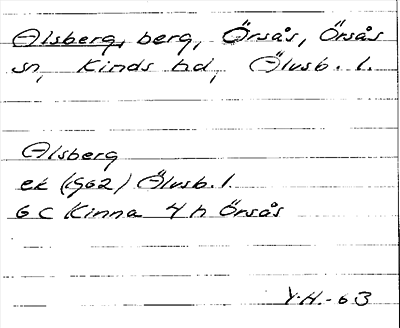 Alsberg, berg, Örsås, Örsås
sn, Kinds hd, Älvsb. l.
Alsberg
ek (1962) Älvsb. l.
6 C Kinna 4 h Örsås
Y.H.-63